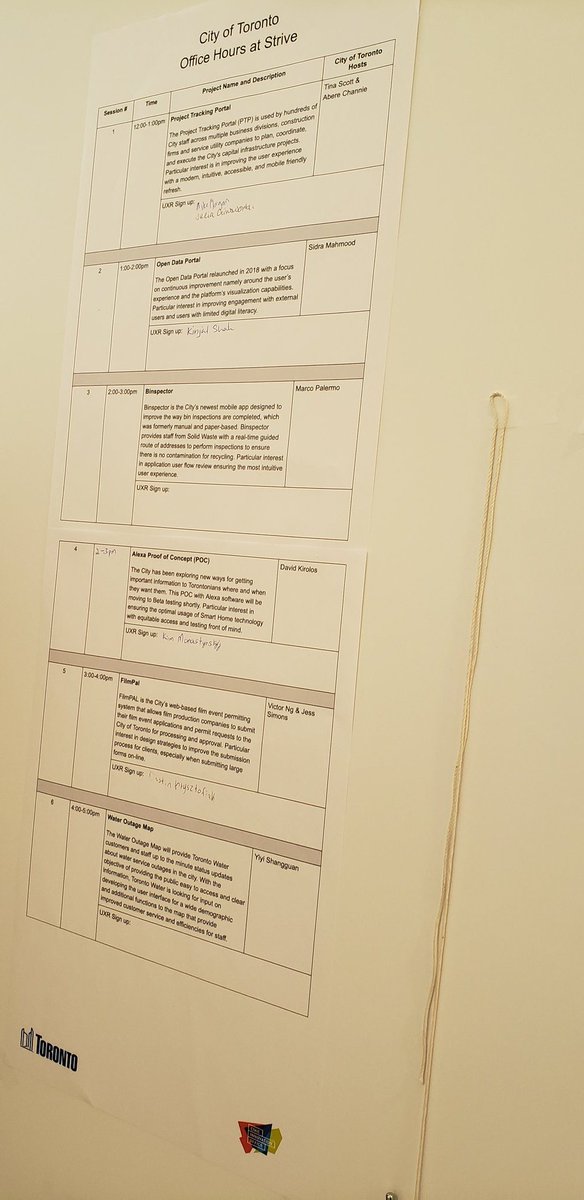 City of Toronto
Office Hours at Strive
Session #
Time
Project Name and Description
City of Toronto
Hosts
1
12:00-1:00pm
Project Tracking Portal
The Project Tracking Portal (PTP) is used by hundreds of
City staff across multiple business divisions, construction
firms and service utility companies to plan, coordinate,
and execute the City's capital infrastructure projects.
Particular interest is in improving the user experience
with a modern, intuitive, accessible, and mobile friendly
refresh.
Tina Scott &
Abere Channie
UXR Sign up:
2
1:00-2:00pm
Open Data Portal
The Open Data Portal relaunched in 2018 with a focus
on continuous improvement namely around the user's
experience and the platform's visualization capabilities.
Particular interest in improving engagement with external
users and users with limited digital literacy.
Sidra Mahmood
UXR Sign up: Kinjal Shah
3
2:00-3:00pm
Binspector
Binspector is the City's newest mobile app designed to
improve the way bin inspections are completed, which
was formerly manual and paper-based. Binspector
provides staff from Solid Waste with a real-time guided
route of addresses to perform inspections to ensure
there is no contamination for recycling. Particular interest
in application user flow review ensuring the most intuitive
user experience.
Marco Palermo
UXR Sign up:
4
2-3pm
Alexa Proof of Concept (POC)
The City has been exploring new ways for getting
important information to Torontonians where and when
they want them. This POC with Alexa software will be
moving to Beta testing shortly. Particular interest in
ensuring the optimal usage of Smart Home technology
with equitable access and testing front of mind.
David Kirolos
UXR Sign up: Kim Monastyrskyj
5
3:00-4:00pm
FilmPal
FilmPAL is the City's web-based film event permitting
system that allows film production companies to submit
their film event applications and permit requests to the
City of Toronto for processing and approval. Particular
interest in design strategies to improve the submission
process for clients, especially when submitting large
forms on-line.
Victor Ng & Jess
Simons
UXR Sign up:
6
4:00-5:00pm
Water Outage Map
The Water Outage Map will provide Toronto Water
customers and staff up to the minute status updates
about water service outages in the city. With the
objective of providing the public easy to access and clear
information, Toronto Water is looking for input on
developing the user interface for a wide demographic
and additional functions to the map that provide
improved customer service and efficiencies for staff.
Yiyi Shangguan
UXR Sign up:
TORONTO